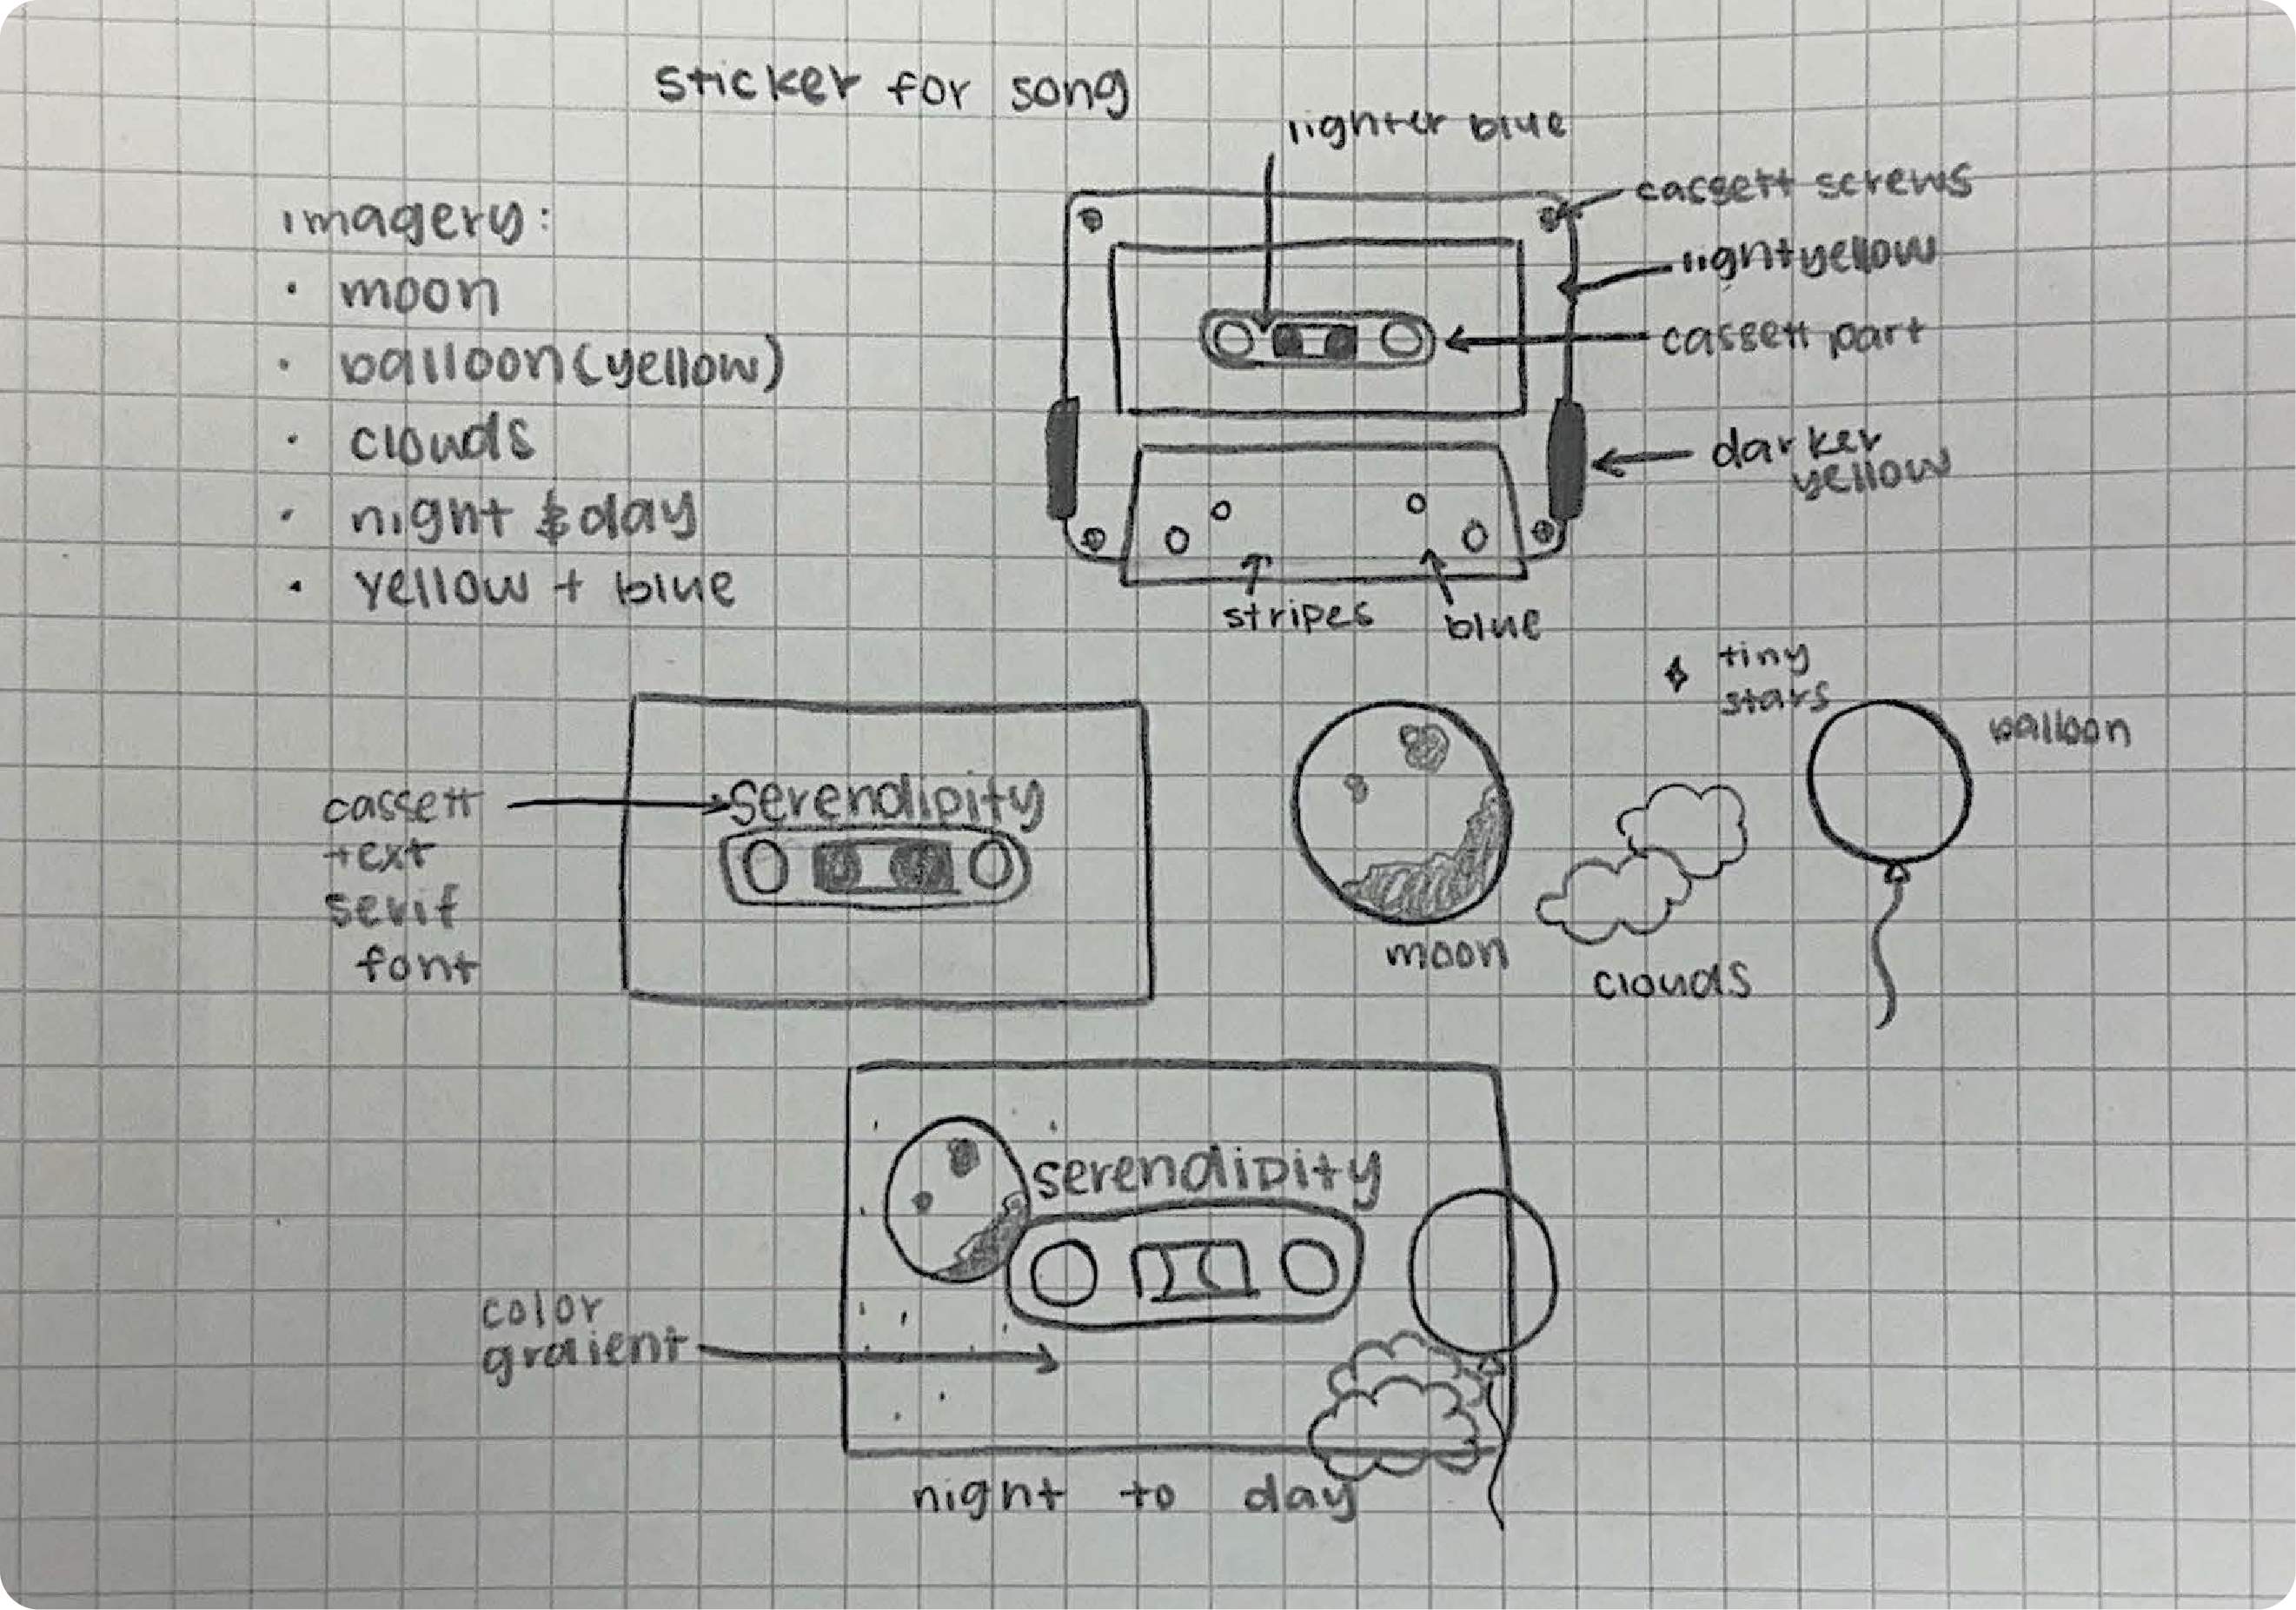 sticker for song
imagery:
· moon
· balloon (yellow)
· clouds
· night & day
· yellow + blue
lighter blue
cassett screws
light yellow
cassett part
darker
yellow
stripes
blue
cassett
text
serif
font
serendipity
moon
tiny
stars
clouds
balloon
serendipity
color
gradient
night to day